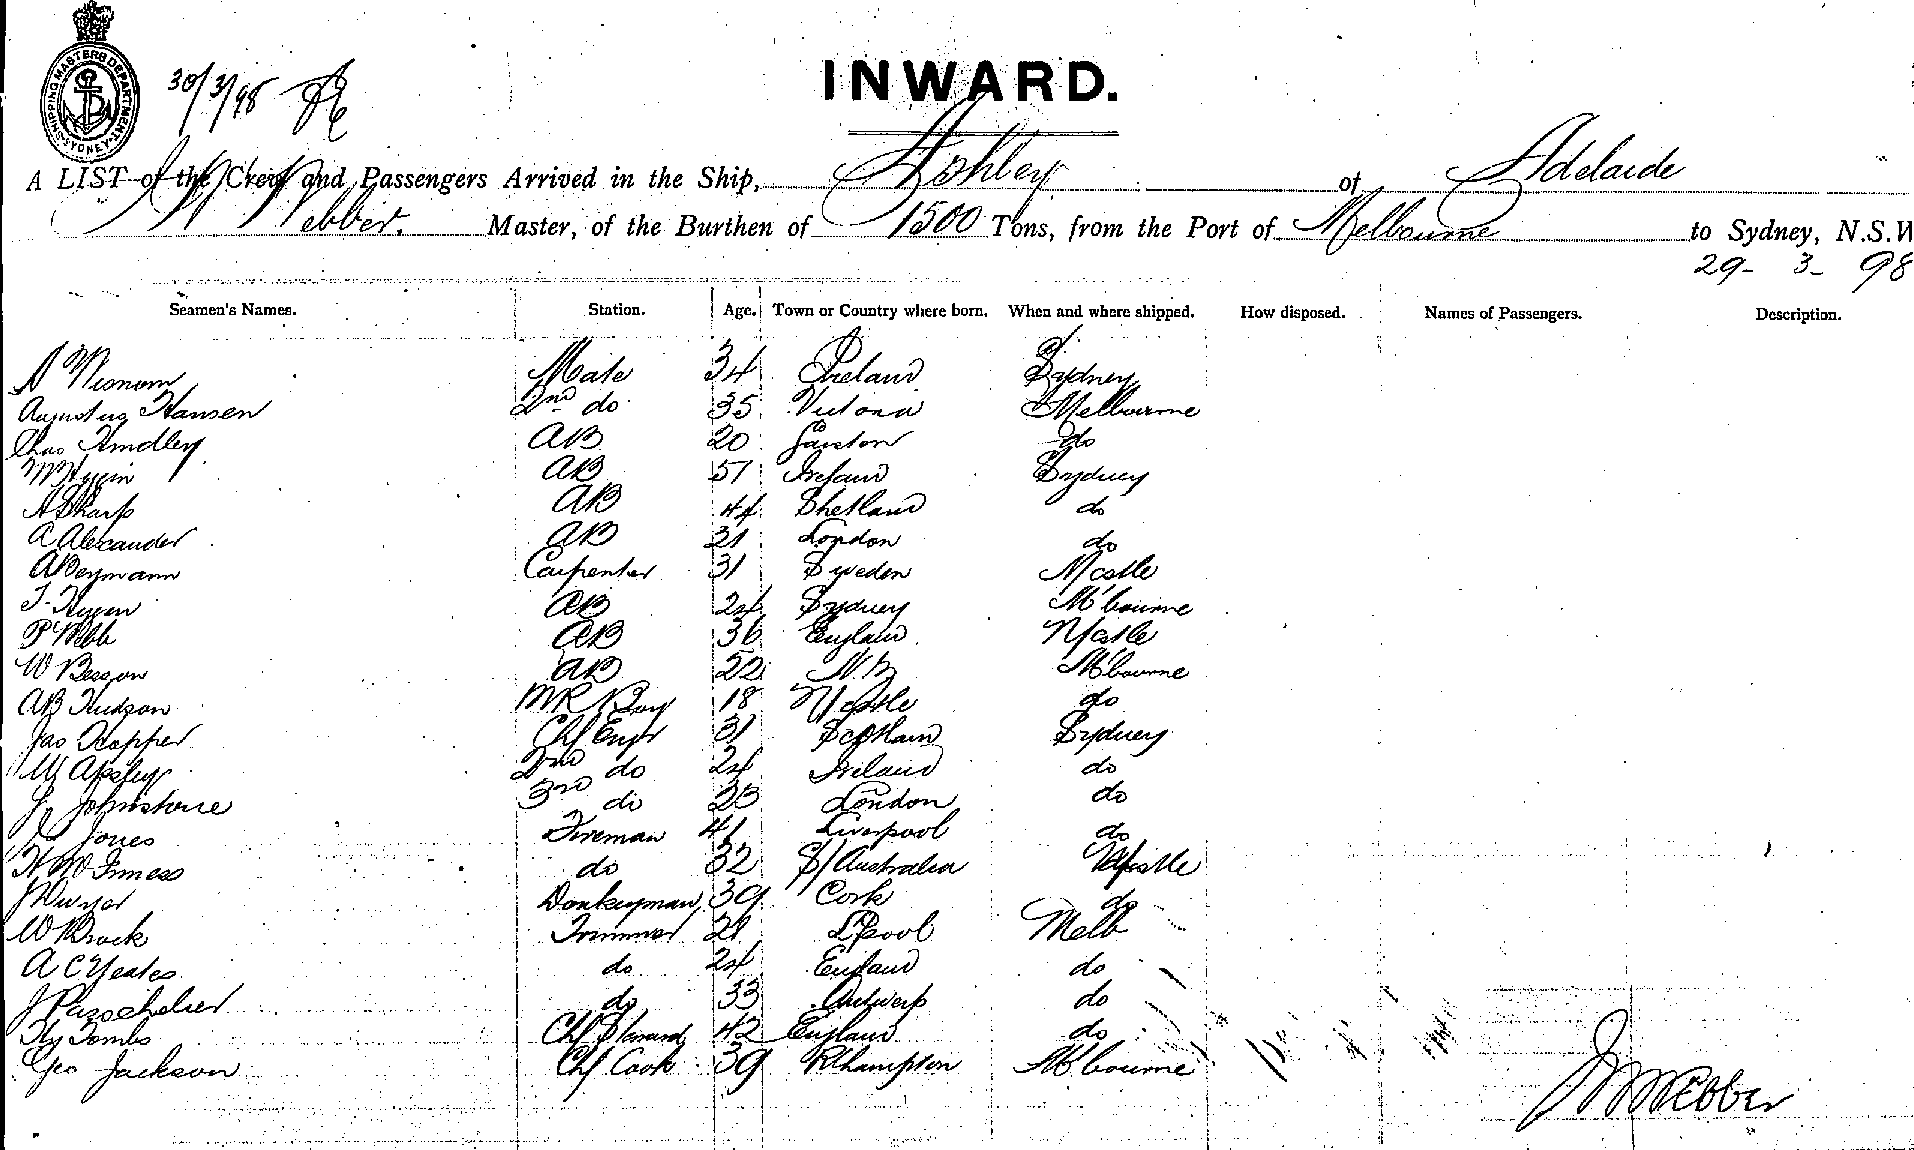 SHIPPING MASTERS DEPARTMENT SYDNEY
30/3/98
INWARD.
A LIST of the Crew and Passengers Arrived in the Ship, Ashley of Adelaide
Webber. Master, of the Burthen of 1500 Tons, from the Port of Melbourne to Sydney, N.S.W
29- 3- 98
Seamen's Names. Station. Age. Town or Country where born. When and where shipped. How disposed. Names of Passengers. Description.
A Mate 34 Ireland Sydney
Augustus Hansen 2nd do 35 Victoria Melbourne
Chas Hindley AB 20 Garston do
AB 51 Ireland Sydney
A Sharp AB 44 Shetland do
A Alexander AB 31 London do
A Beymann Carpenter 31 Sweden N'castle
AB 24 Sydney M'bourne
P Webb AB 36 England N'castle
W Besson AB 22 N.B M'bourne
AB Hudson MR Boy 18 N'castle do
Jas Hopper Chf Engr 31 Scotland Sydney
W Apsley 2nd do 24 Ireland do
J Johnstone 3rd do 23 London do
Jones Fireman 41 Liverpool do
H McInness do 32 S/Australia N'castle
J Dwyer Donkeyman 39 Cork do
W Brock Trimmer 21 L'pool Melb
A C Yeates do 24 England do
J Passchelier do 33 Antwerp do
Hy Tombs Chf Steward 42 England do
Geo Jackson Chf Cook 39 R'hampton M'bourne
Webber